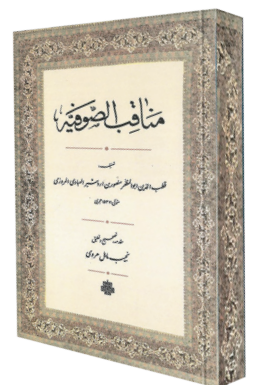 مناقب الصوفیه
تصنیف:
قطب الدین ابوالمظفر منصور بن اردشیر العبادی المروزی
مقدمه تصحیح و تعلیق
نجیب مایل هروی